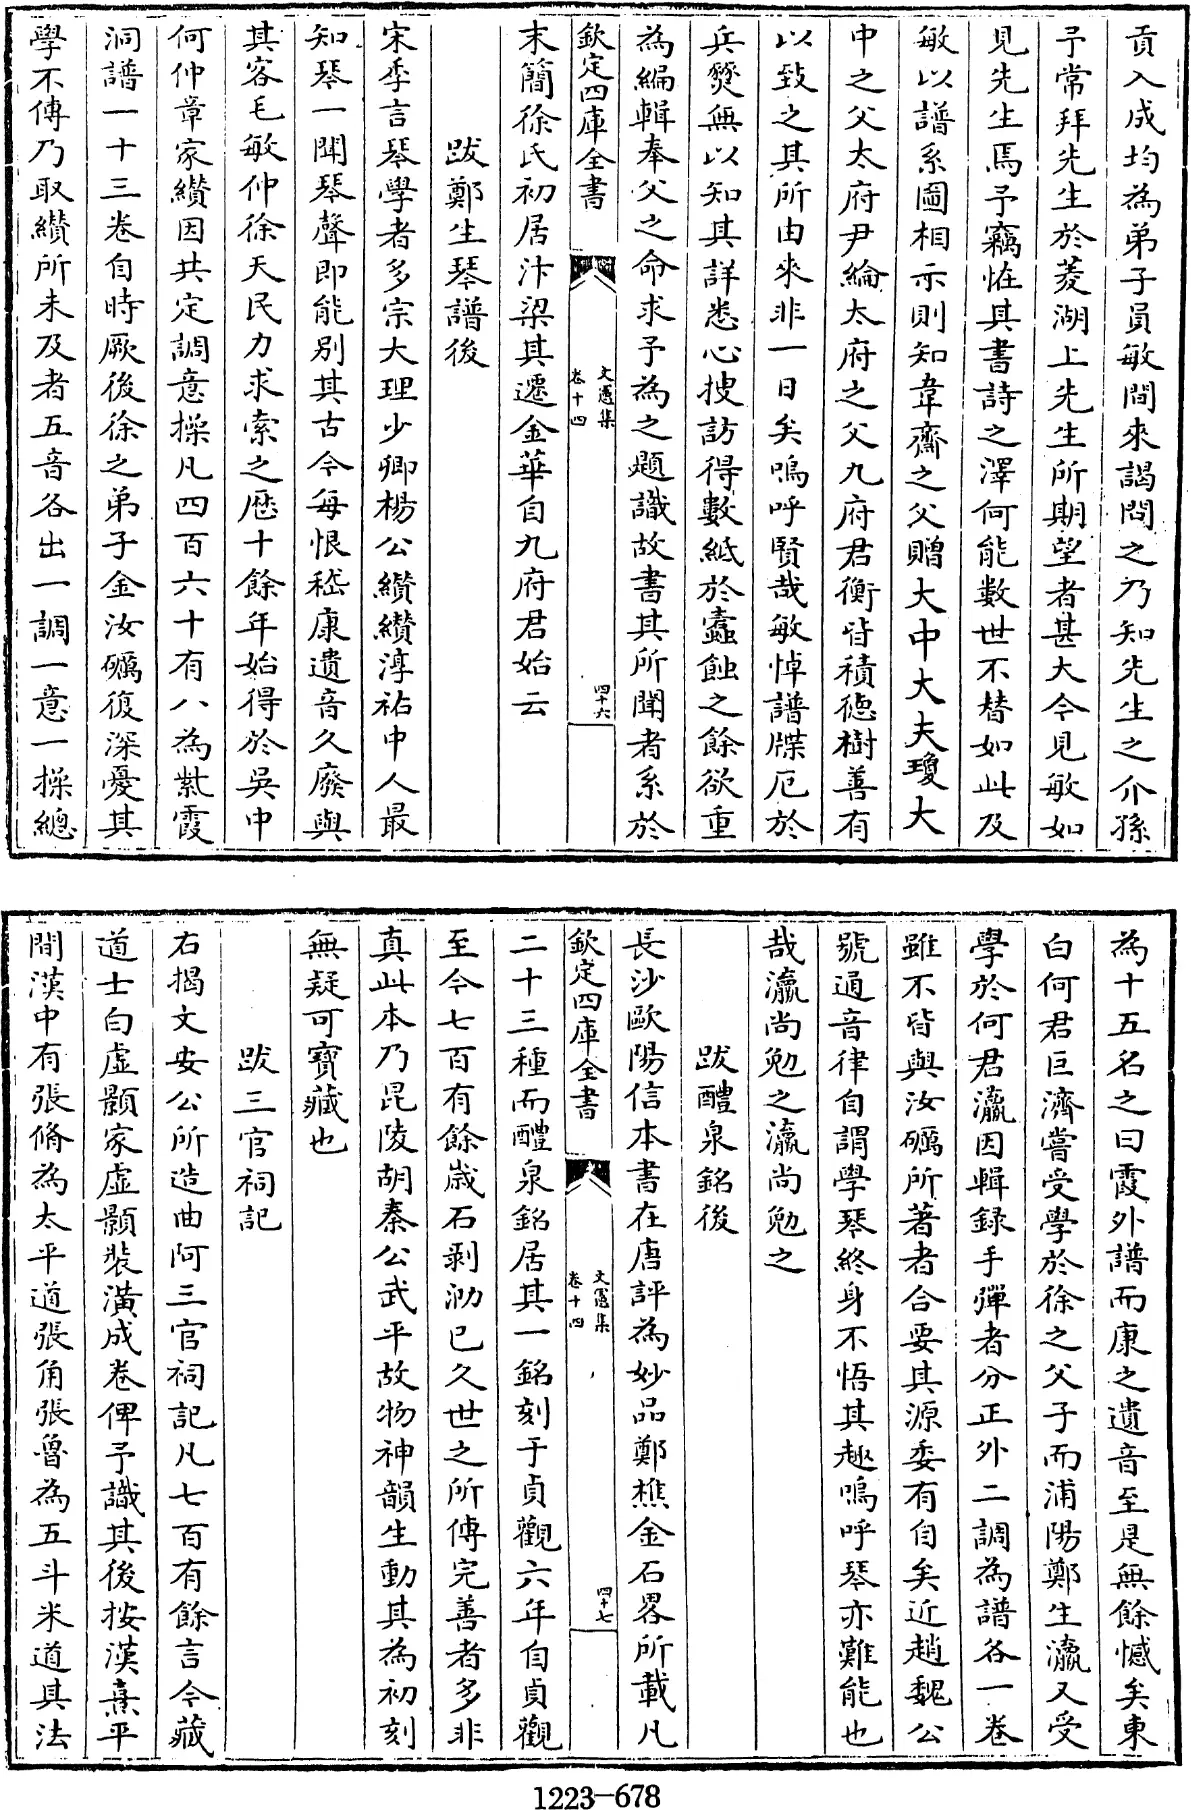 貢入成均為弟子員敏間來謁問之乃知先生之介孫
予常拜先生於菱湖上先生所期望者甚大今見敏如
見先生焉予竊恠其書詩之澤何能數世不替如此及
敏以譜系圖相示則知韋齋之父贈大中大夫瓊大
中之父太府尹綸太府之父九府君衡皆積德樹善有
以致之其所由來非一日矣嗚呼賢哉敏悼譜牒厄於
兵燹無以知其詳悉心搜訪得數紙於蠹蝕之餘欲重
為編輯奉父之命求予為之題識故書其所聞者系於
欽定四庫全書
文憲集
卷十四
四十六
末簡徐氏初居汴梁其遷金華自九府君始云
跋鄭生琴譜後
宋季言琴學者多宗大理少卿楊公纘纘淳祐中人最
知琴一聞琴聲即能別其古今每恨嵇康遺音久廢與
其客毛敏仲徐天民力求索之歴十餘年始得於吳中
何仲章家纘因共定調意操凡四百六十有八為紫霞
洞譜一十三卷自時厥後徐之弟子金汝礪復深憂其
學不傳乃取纘所未及者五音各出一調一意一操總
為十五名之曰霞外譜而康之遺音至是無餘憾矣東
白何君巨濟嘗受學於徐之父子而浦陽鄭生瀛又受
學於何君瀛因輯録手彈者分正外二調為譜各一卷
雖不皆與汝礪所著者合要其源委有自矣近趙魏公
號通音律自謂學琴終身不悟其趣嗚呼琴亦難能也
哉瀛尚勉之瀛尚勉之
跋醴泉銘後
長沙歐陽信本書在唐評為妙品鄭樵金石畧所載凡
欽定四庫全書
文憲集
卷十四
四十七
二十三種而醴泉銘居其一銘刻于貞觀六年自貞觀
至今七百有餘歲石剥泐已久世之所傳完善者多非
真此本乃毘陵胡秦公武平故物神韻生動其為初刻
無疑可寶藏也
跋三官祠記
右揭文安公所造曲阿三官祠記凡七百有餘言今藏
道士白虛顥家虛顥裝潢成卷俾予識其後按漢熹平
間漢中有張脩為太平道張角張魯為五斗米道其法
1223-678